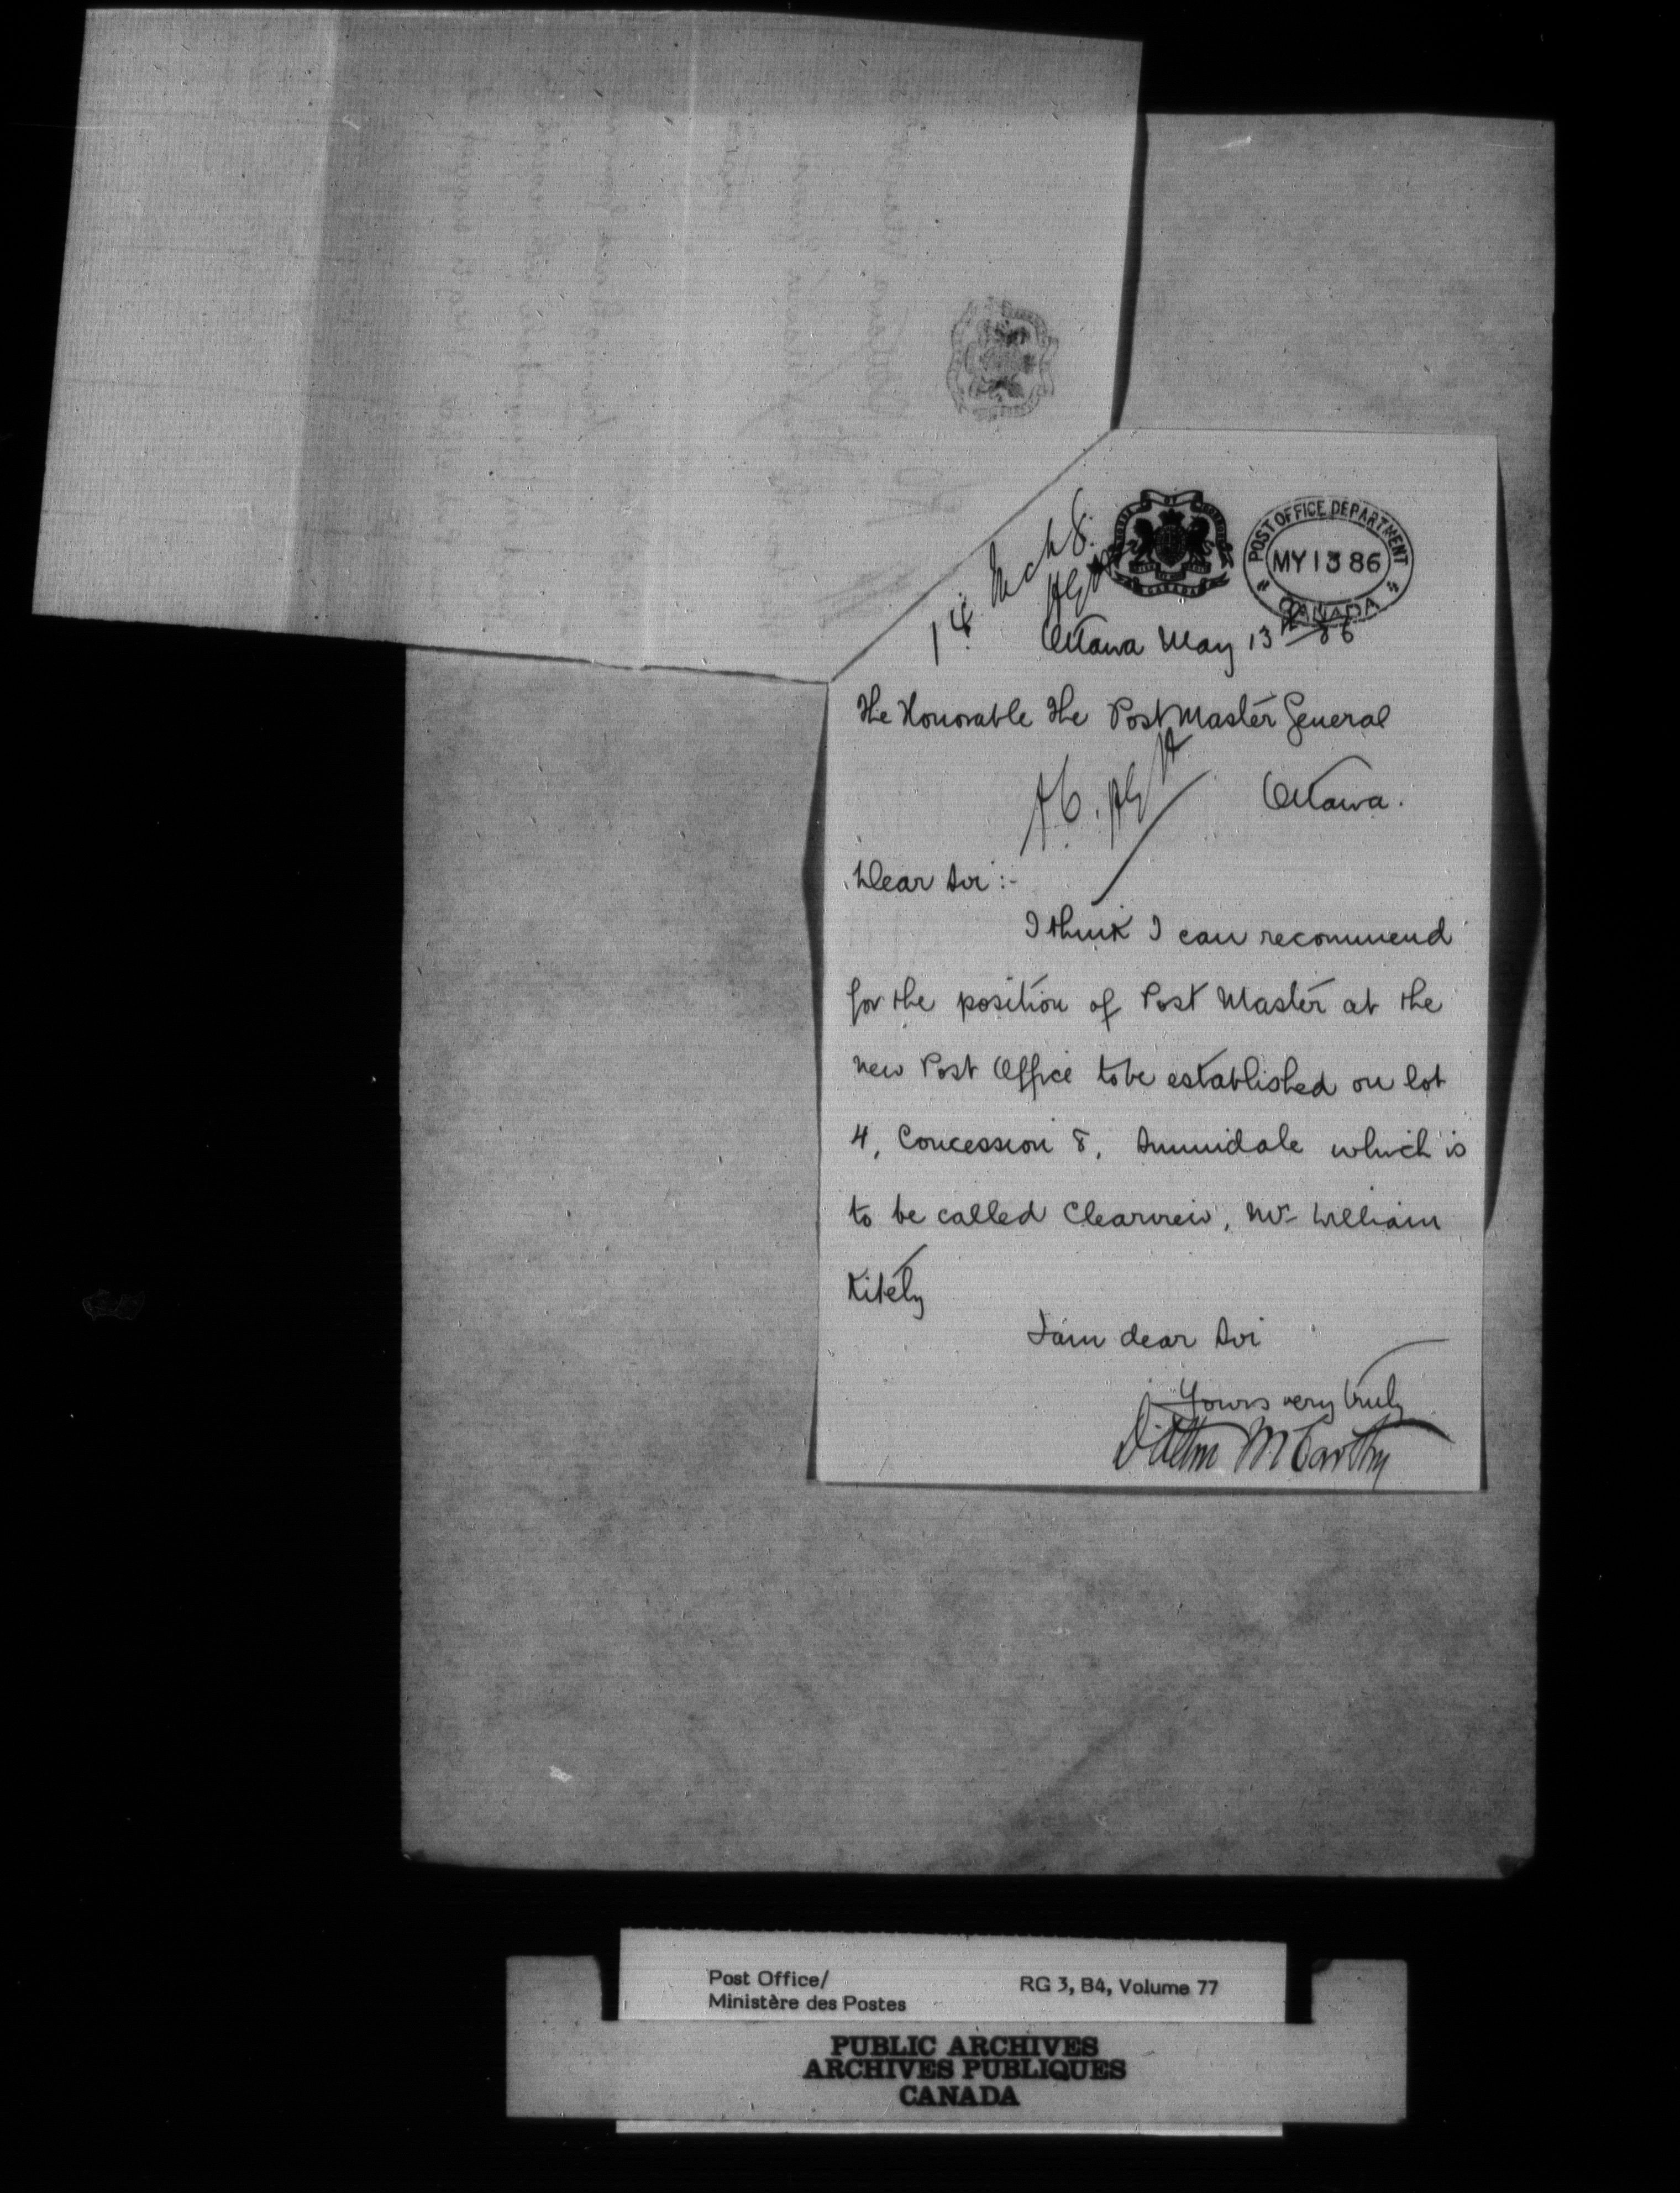 POST OFFICE DEPARTMENT
MY 13 86
CANADA
Ottawa May 13th 86
The Honorable The Post Master General
Ottawa.
Dear Sir :-
I think I can recommend
for the position of Post Master at the
new Post Office to be established on lot
4, Concession 8, Sunnidale which is
to be called Clearview, Mr William
Kitely
I am dear Sir
Yours very truly
Dalton McCarthy
Post Office/
Ministère des Postes
RG 3, B4, Volume 77
PUBLIC ARCHIVES
ARCHIVES PUBLIQUES
CANADA